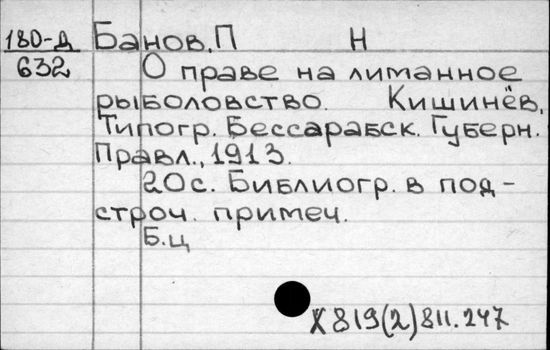 180-Д Банов, П Н
632 О праве на лиманное
рыболовство. Кишинёв,
Типогр. Бессарабск. Губерн.
Правл., 1913.
20с. Библиогр. в под-
строч. примеч.
Б.ц
X819(2)811.247